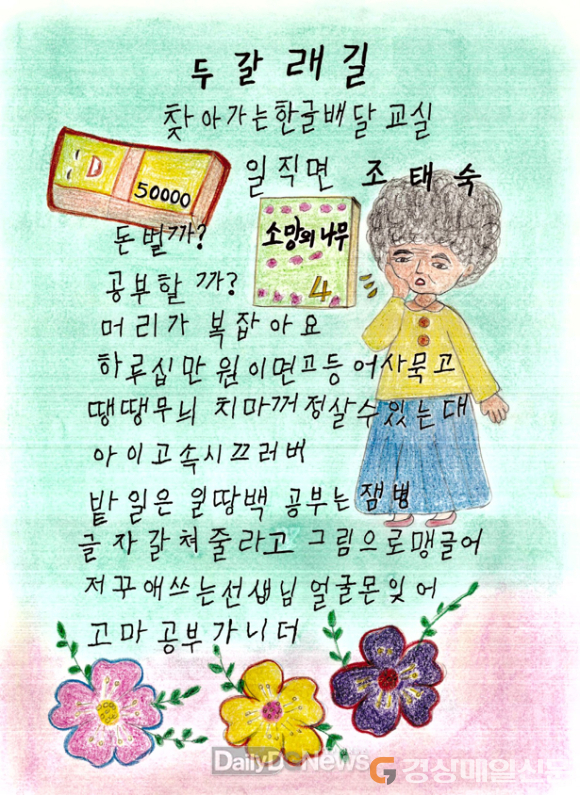 두 갈 래 길
찾아가는한글배달교실
일직면 조태숙
50000
소망의 나무
4
돈벌까?
공부할까?
머리가 복잡아요
하루십만 원이면고등어사묵고
땡땡무늬 치마꺼정살수있는대
아이고속시끄러버
밭일은 일땅백 공부는잼병
글자갈쳐줄라고 그림으로맹글어
저꾸애쓰는선생님 얼굴몬잊어
고마 공부가니더
경상매일신문